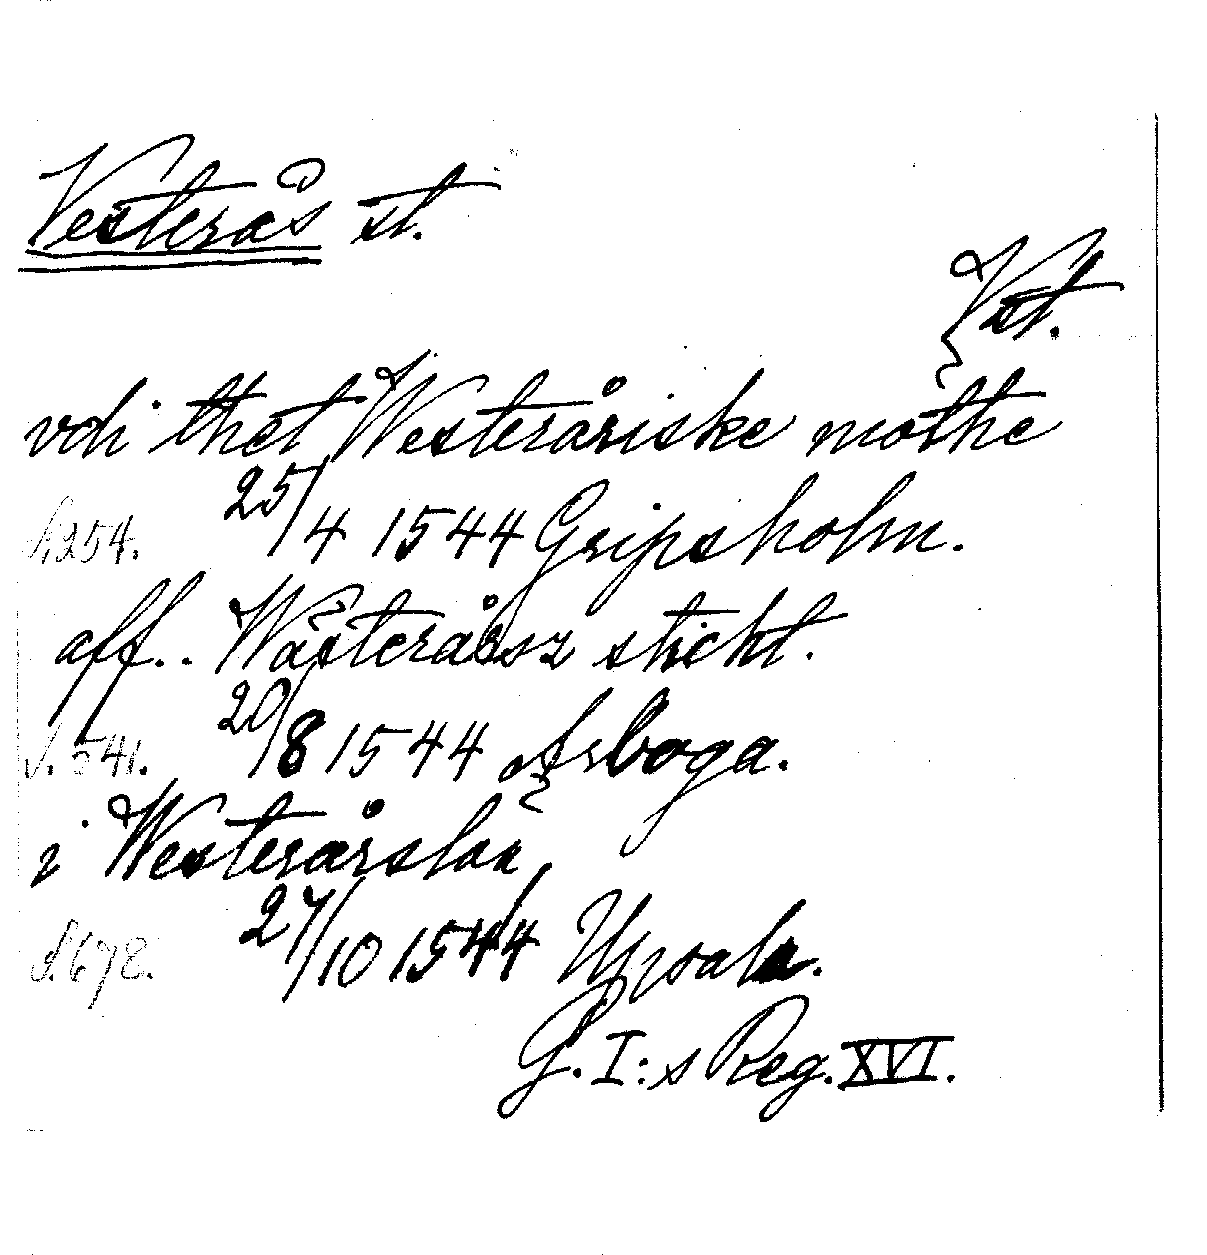 Vesterås st.
Vst.
vdi thet Westeråriske mothe
S. 254. 25/4 1544 Gripsholm.
aff.. Wästeråssz sticht.
S. 541. 20/8 1544 Arboga.
i Westerårslaa,
S. 678. 27/10 1544 Upsala.
G. I:s Reg. XVI.